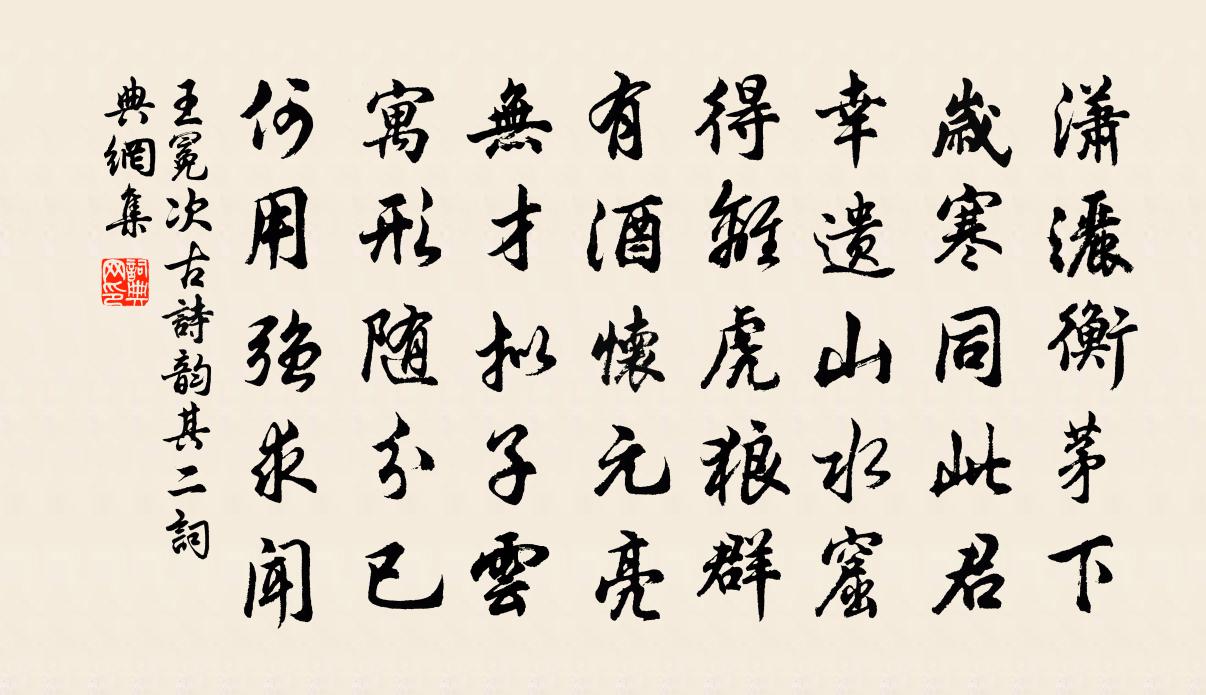 瀟灑衡茅下
歲寒同此君
幸遺山水窟
得離虎狼群
有酒懷元亮
無才擬子雲
寓形隨分已
何用強求聞
王冕次古詩韵其二詞
典網集
詞典
网印